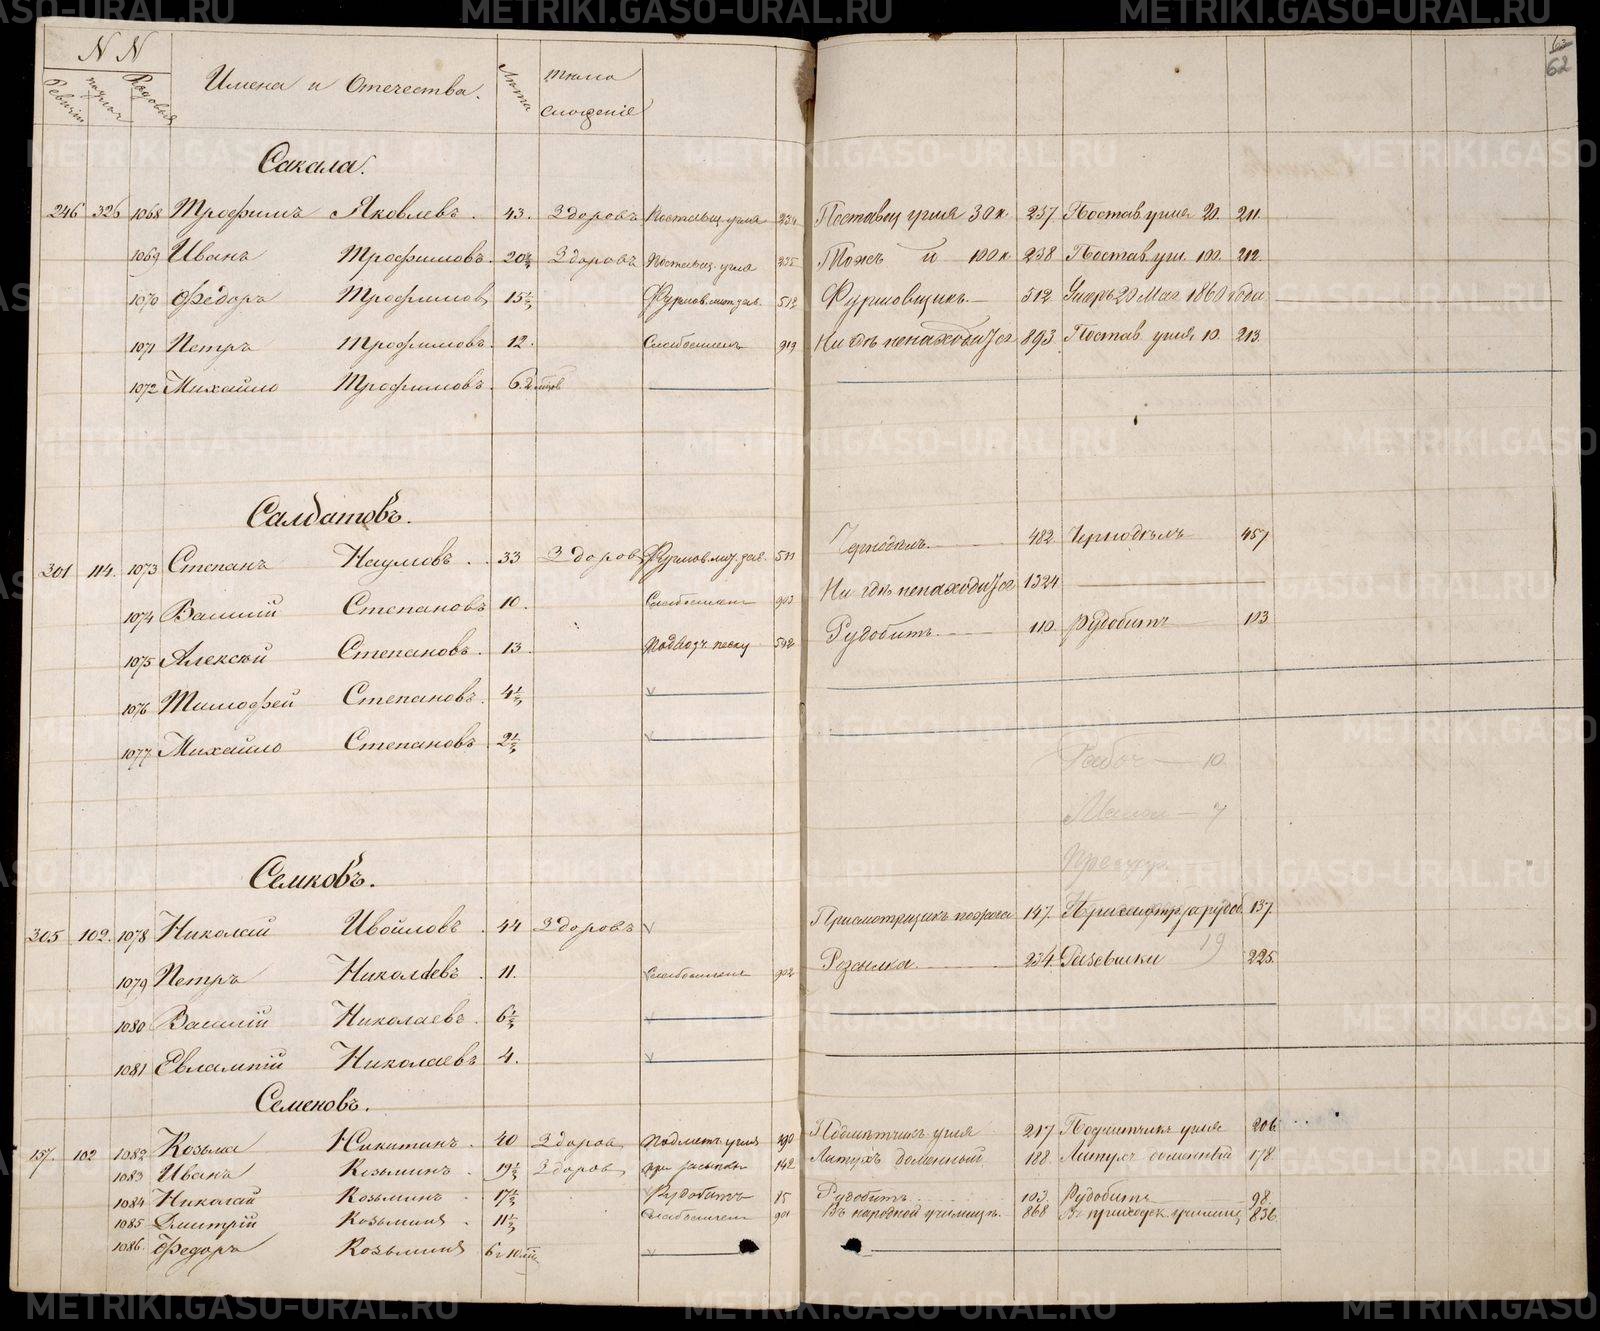 METRIKI.GASO-URAL.RU
62
N N
Имена и Отечества.
Лѣта
тѣло
сложеніе
Сакала.
246 326 1068 Трофимъ Яковлевъ. 43. Здоровъ Поставщ. угля 234 Поставщ угля 30 к. 237 Постав угля 20. 211.
1069 Иванъ Трофимовъ. 20½ Здоровъ Поставщ. угля 235 Тожъ и 100 к. 238 Постав уг. 100. 212.
1070 Федоръ Трофимовъ 15½ 512 Фурмовщикъ. 512 Умеръ 20 Мая 1860 года
1071 Петръ Трофимовъ. 12. 919 Ни гдѣ ненаходится 893 Постав. угля 10. 213.
1072 Михайло Трофимовъ. 6.
Салдатовъ.
301 114. 1073 Степанъ Наумовъ. 33 Здоровъ 511 Чернодѣлъ. 482 Чернодѣлъ 457
1074 Василій Степановъ 10. 903 Ни гдѣ ненаходится 1324
1075 Алексѣй Степановъ. 13. Подвозч песку 502 Рудобитъ. 110 Рудобитъ 103
1076 Тимофей Степановъ. 4½
1077 Михайло Степановъ 2½
Рабоч — 10
Малол — 7
Семковъ.
305 102. 1078 Николай Ивойловъ. 44 Здоровъ Присмотрщикъ 147. 137
19
1079 Петръ Николаевъ. 11. 902 Розсылка 234. 225
1080 Василій Николаевъ. 6½
1081 Евлампій Николаевъ 4.
Семеновъ.
157. 102 1082 Козьма Никитинъ. 40 Здоровъ Подметч угля 290 Подмѣтчикъ угля 217 Подметчикъ угля 206.
1083 Иванъ Козьминъ. 19½ Здоровъ при засыпкѣ 142 Литухъ доменный 188 Литухъ доменный 178
1084 Николай Козьминъ 17½ Рудобитъ 85 Рудобитъ 103. Рудобитъ 98.
1085 Дмитрій Козьминъ. 11½ 901 Въ народной училищѣ. 868 В приходск. училищ 836
1086. Федоръ Козьминъ 6 г 10 мѣс